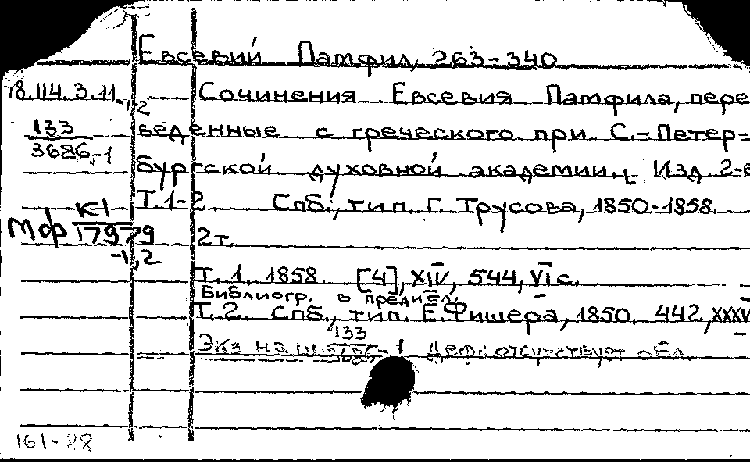 Евсевий Памфил, 263-340
18.114.3.11 -1,2 Сочинения Евсевия Памфила, пере
133 веденные с греческого при С.-Петер-
3686 -1 бургской духовной академии. Изд. 2-е
Т. 1-2. Спб., тип. Г. Трусова, 1850-1858.
Мфр К1 17979 -1,2 2 т.
Т. 1. 1858. [4], XIV, 544, VI с.
Библиогр. в предисл.
Т. 2. Спб., тип. Е. Фишера, 1850. 442, XXXV
Экз на ш 133 -1 деф: отсутствует обл.
161-88